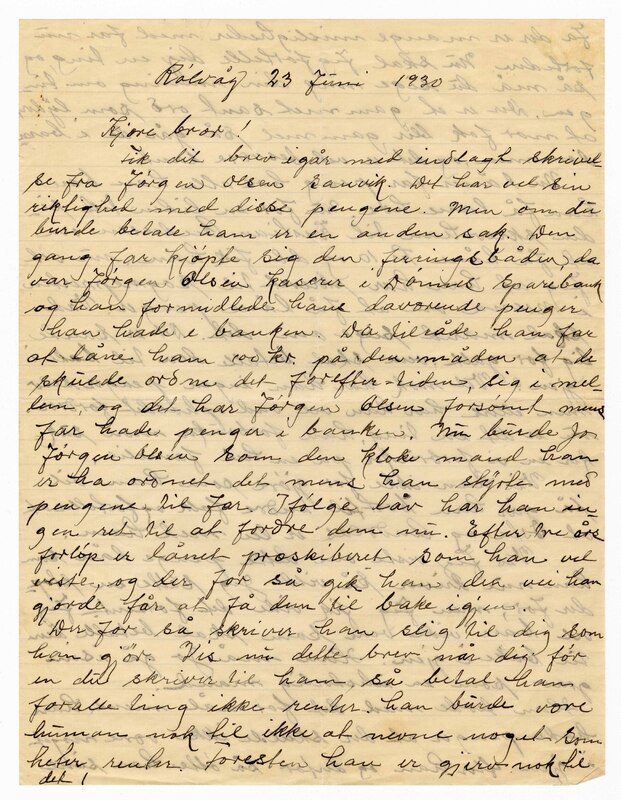 Rølvåg 23 Juni 1930
Kjære bror!
Fik dit brev igår med indlagt skrivel-
se fra Jørgen Olsen Sanvik. Det har vel sin
riktighet med disse pengene. Men om du
burde betale ham er en anden sak. Den
gang far kjøpte sig den færingsbåden da
var Jørgen Olsen kaserer i Dønnes Sparebank
og han formidlede hans davørende penger
han hade i banken. Da tilråde han far
at låne ham 100 kr. på den måden at de
skulde ordne det forefter-tiden, sig i mel-
lem, og det har Jørgen Olsen forsømt mens
far hade penger i banken. Nu burde Jo
Jørgen Olsen som den kloke mand han
er ha ordnet det mens han styrte med
pengene til far. Ifølge låv har han in
gen ret til at fordre dem nu. Efter tre års
forløp er lånet proskiberet som han vel
viste, og der for så gik han den vei han
gjorde får at få dem til bake igjen.
Der for så skriver han slig til dig som
han gjør. Vis nu dette brev når dig før
en du skriver til ham, så betal ham
foralle ting ikke renter. han burde være
human nok til ikke at nevne noget som
heter renter. Foresten han er gjerv nok til
det!